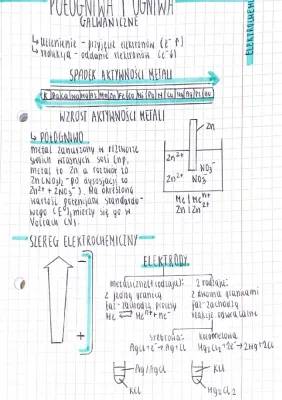 PÓŁOGNIWA I OGNIWA
GALWANICZNE
↳ Utlenienie - przyjęcie elektronów (e⁻ ↑)
↳ redukcja - oddanie elektronów (e⁻ ↓)
SPADEK AKTYWNOŚCI METALI
WZROST AKTYWNOŚCI METALI
↳ PÓŁOGNIWO
metal zanurzony w roztworze
swoich własnych soli (np.
metal to Zn a roztwór to
Zn(NO₃)₂ - po dysocjacji to
Zn²⁺ + 2NO₃⁻). Ma określoną
wartość potencjału standardo-
wego (E°), mierzy się go w
Voltach (V).
Zn
Zn²⁺
NO₃⁻
Zn²⁺ NO₃⁻
Me | Meⁿ⁺
Zn | Zn²⁺
SZEREG ELEKTROCHEMICZNY
+
ELEKTRODY
metaliczne (I rodzaju):
z jedną granicą
faz - zachodzą procesy
Me ⇌ Meⁿ⁺ + ne⁻
2 rodzaju:
z dwoma granicami
faz - zachodzą
reakcje odwracalne
srebrowa:
AgCl + e⁻ → Ag + Cl
kalomelowa
Hg₂Cl₂ + 2e⁻ → 2Hg + 2Cl
Ag/AgCl
KCl
KCl
Hg₂Cl₂
ELEKTROCHEMIA